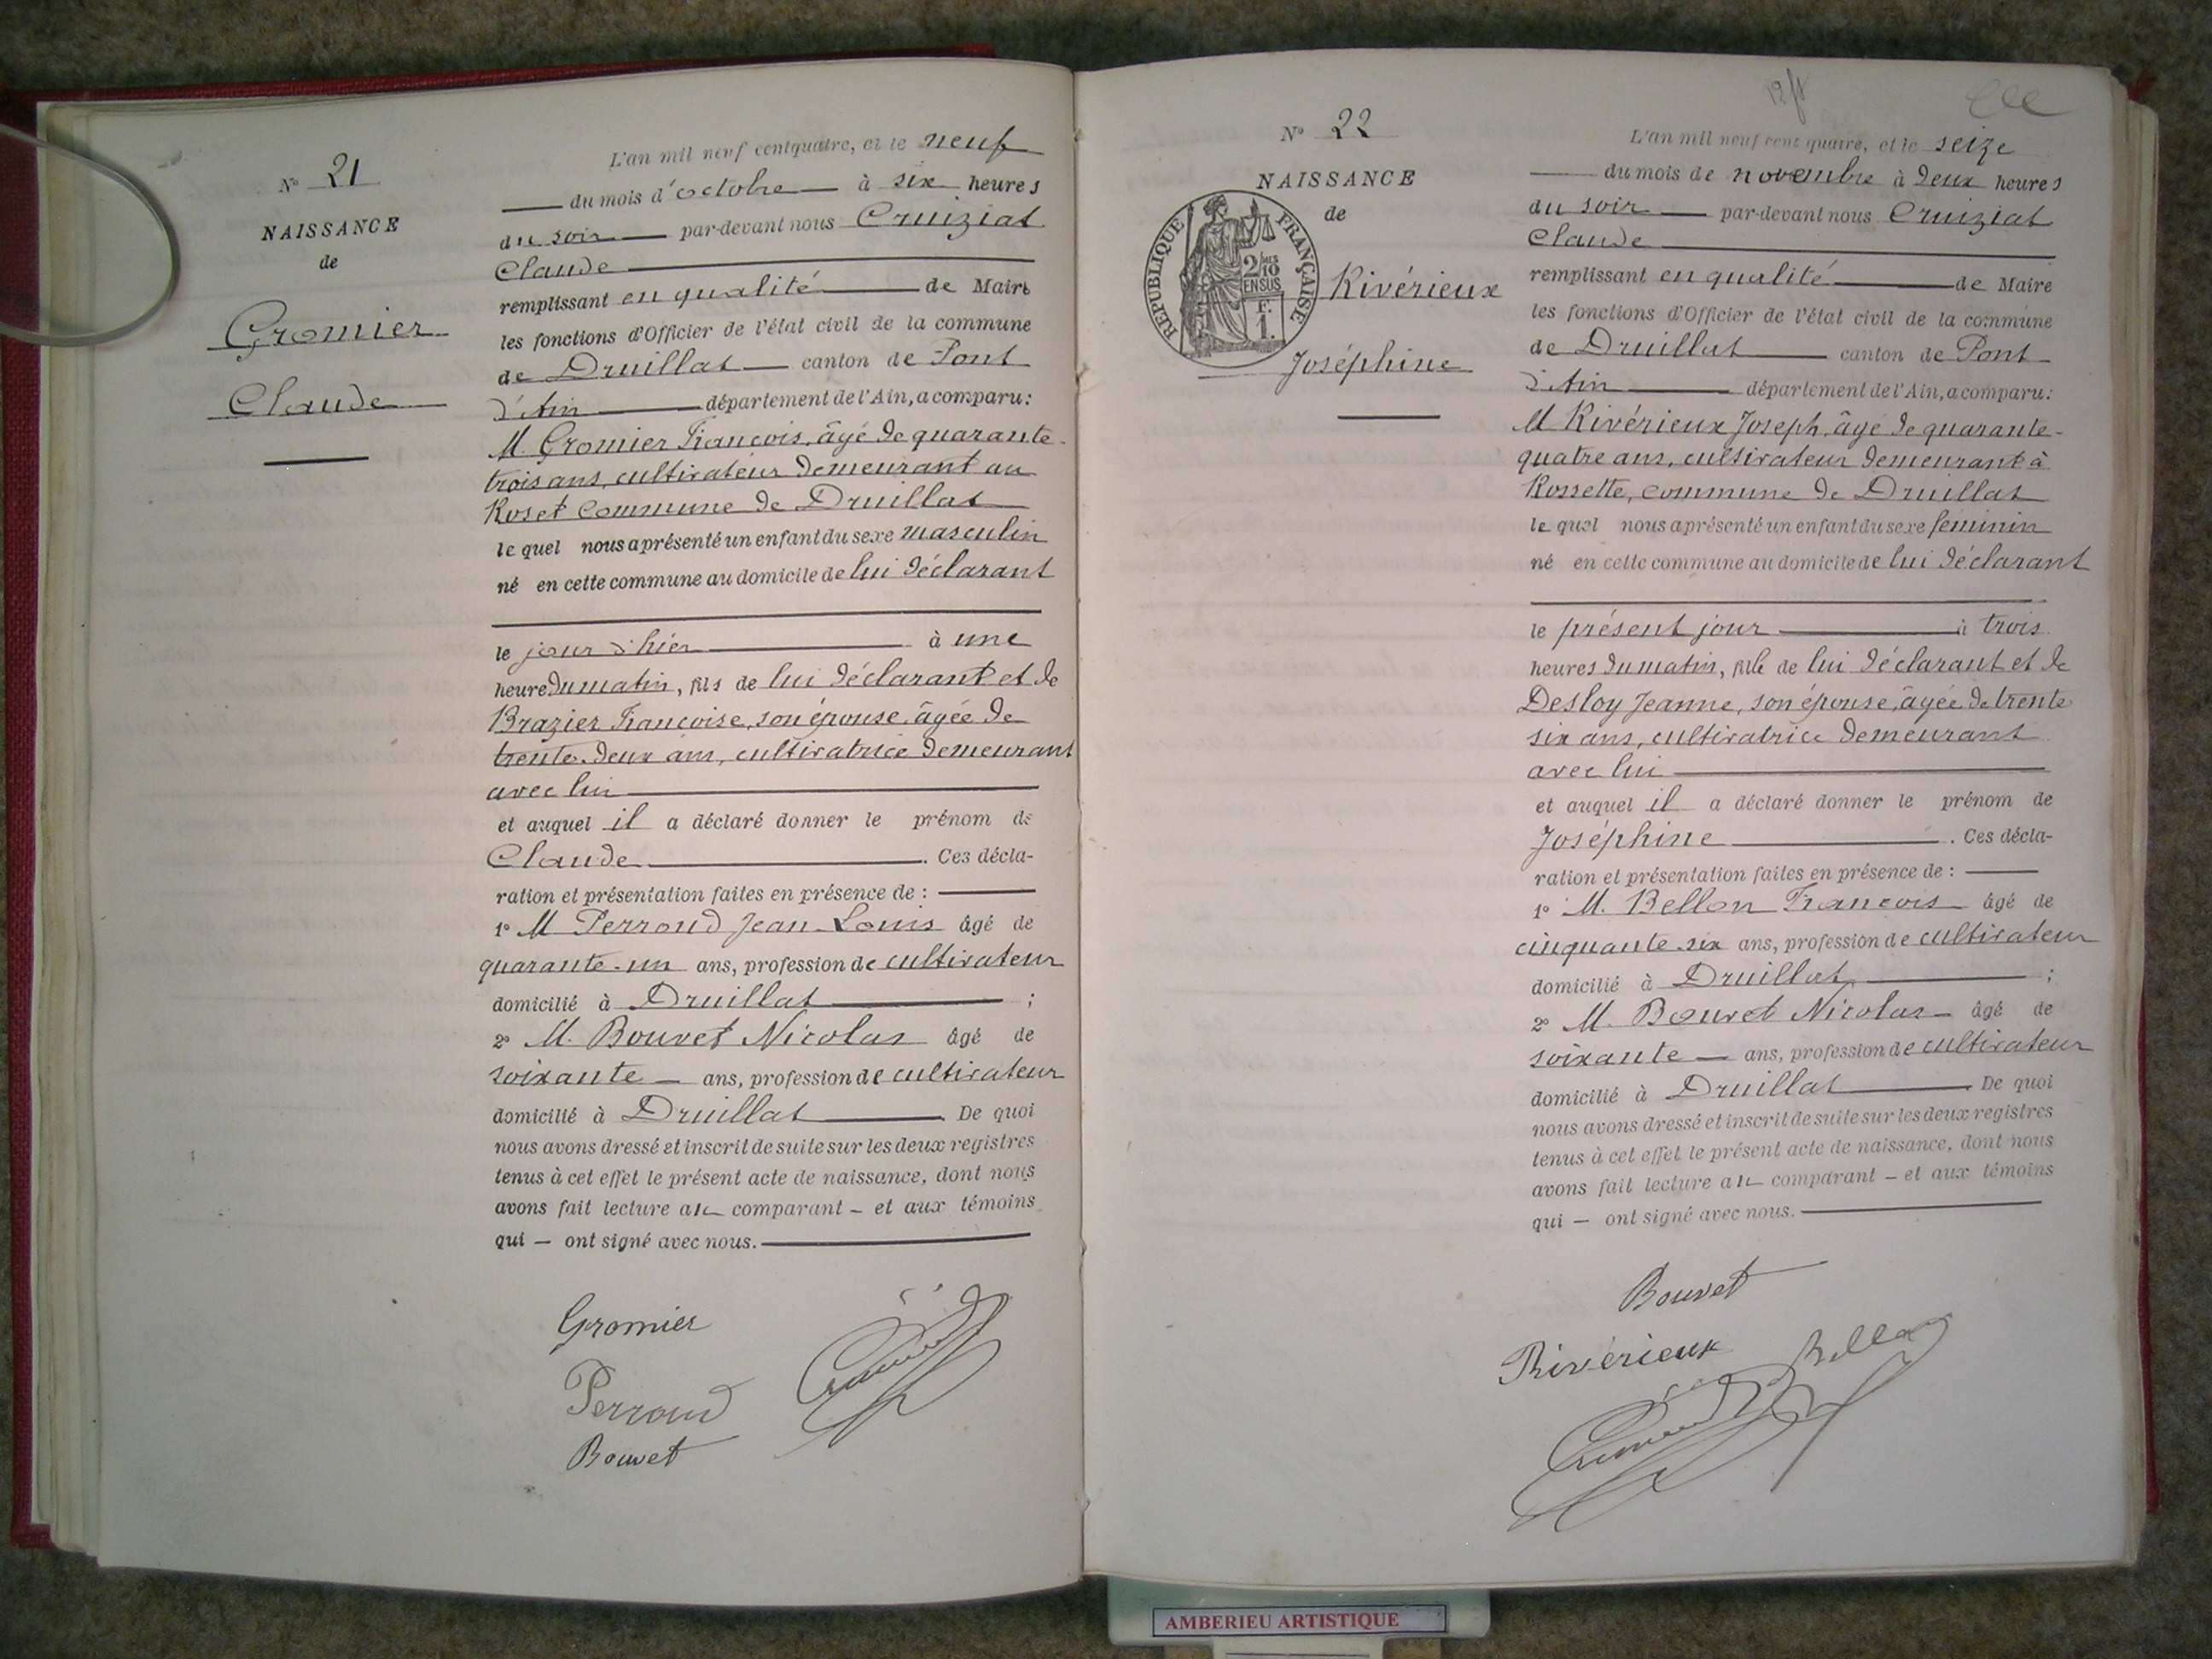 N° 21
NAISSANCE
de
Gromier
Claude
L'an mil neuf cent quatre, et le neuf
du mois d'octobre à six heures
du soir par-devant nous Cruiziat
Claude
remplissant en qualité de Maire
les fonctions d'Officier de l'état civil de la commune
de Druillat canton de Pont
d'Ain département de l'Ain, a comparu:
M. Gromier François, âgé de quarante-
trois ans, cultivateur demeurant au
Roset commune de Druillat
le quel nous a présenté un enfant du sexe masculin
né en cette commune au domicile de lui déclarant
le jour d'hier à une
heure du matin, fils de lui déclarant et de
Brazier Françoise, son épouse, âgée de
trente-deux ans, cultivatrice demeurant
avec lui
et auquel il a déclaré donner le prénom de
Claude. Ces décla-
ration et présentation faites en présence de :
1° M Perroud Jean-Louis âgé de
quarante-un ans, profession de cultivateur
domicilié à Druillat ;
2° M. Bouvet Nicolas âgé de
soixante ans, profession de cultivateur
domicilié à Druillat. De quoi
nous avons dressé et inscrit de suite sur les deux registres
tenus à cet effet le présent acte de naissance, dont nous
avons fait lecture au comparant – et aux témoins
qui — ont signé avec nous.
Gromier
Perroud
Bouvet
N° 22
NAISSANCE
de
RÉPUBLIQUE FRANÇAISE
2/10
EN SUS
F.
1.
Rivérieux
Joséphine
L'an mil neuf cent quatre, et le seize
du mois de novembre à deux heures
du soir par-devant nous Cruiziat
Claude
remplissant en qualité de Maire
les fonctions d'Officier de l'état civil de la commune
de Druillat canton de Pont
d'Ain département de l'Ain, a comparu:
M Rivérieux Joseph, âgé de quarante-
quatre ans, cultivateur demeurant à
Rossette, commune de Druillat
le quel nous a présenté un enfant du sexe feminin
né en cette commune au domicile de lui déclarant
le présent jour à trois
heures du matin, fille de lui déclarant et de
Desloy Jeanne, son épouse, âgée de trente
six ans, cultivatrice demeurant
avec lui
et auquel il a déclaré donner le prénom de
Joséphine. Ces décla-
ration et présentation faites en présence de :
1° M. Bellon François âgé de
cinquante-six ans, profession de cultivateur
domicilié à Druillat ;
2° M. Bouvet Nicolas âgé de
soixante — ans, profession de cultivateur
domicilié à Druillat De quoi
nous avons dressé et inscrit de suite sur les deux registres
tenus à cet effet le présent acte de naissance, dont nous
avons fait lecture au comparant – et aux témoins
qui — ont signé avec nous.
Bouvet
Rivérieux
AMBERIEU ARTISTIQUE